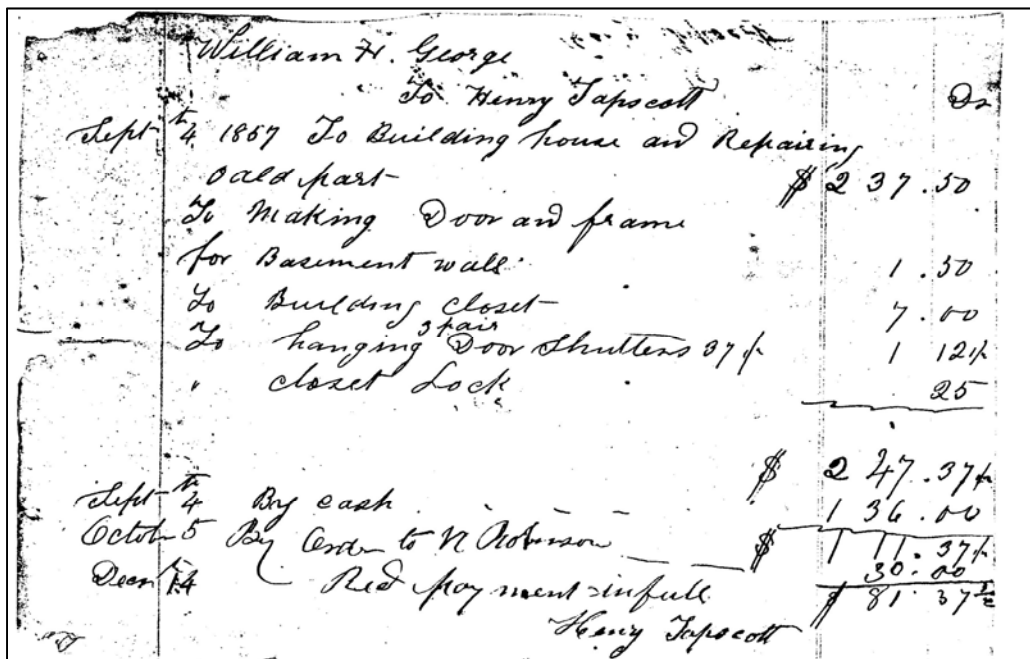 William H. George
To Henry Tapscott Dr
Sept 4th 1867 To Building house and Repairing
oald part $ 237.50
To Making Door and frame
for Basement wall 1.50
To Building closet 7.00
3 pair
To hanging Door Shutters 37½ 1 12½
" closet Lock 25
$ 247.37½
Sept 4th By cash 136.00
Octob 5 By Order to N Robinson $ 111.37½
30.00
Decm 14 Recd payment in full $ 81.37½
Henry Tapscott